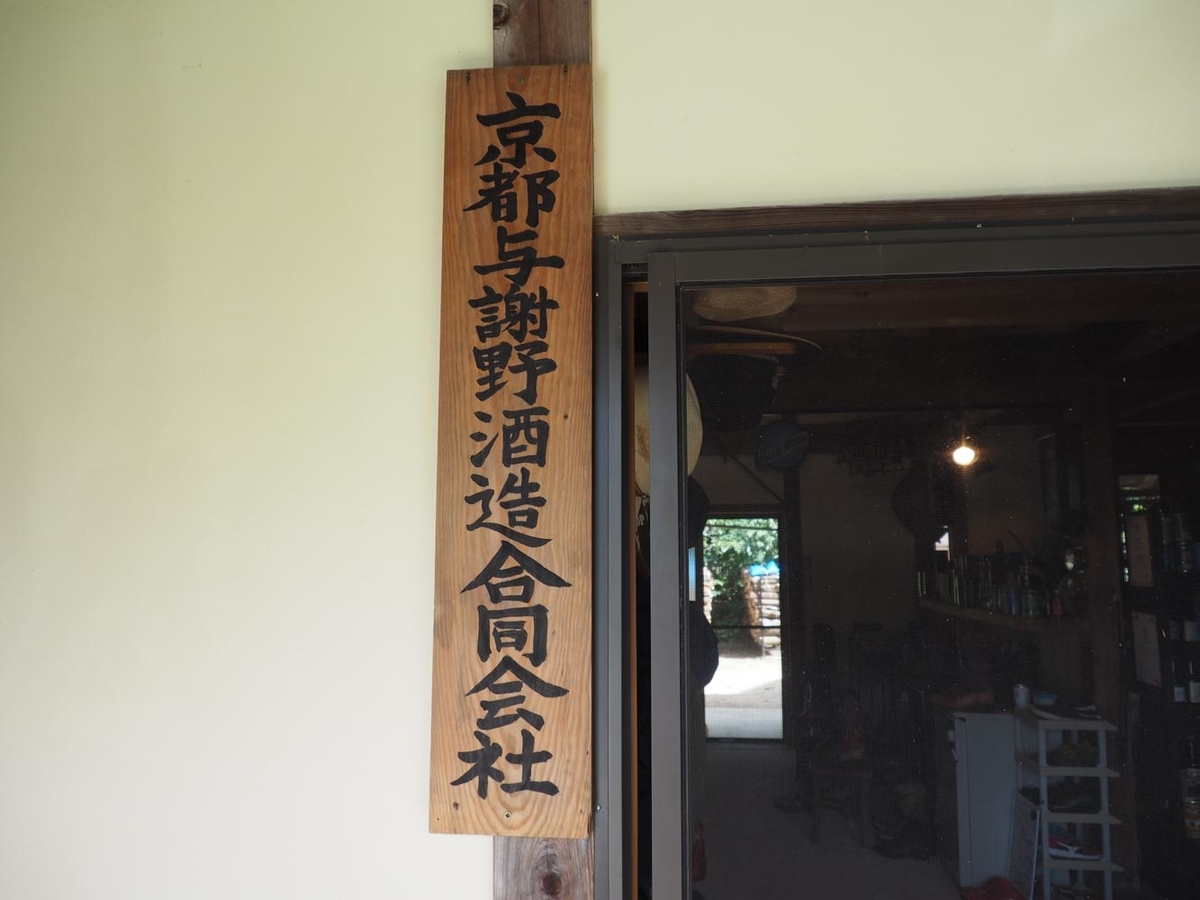 京都与謝野酒造合同会社